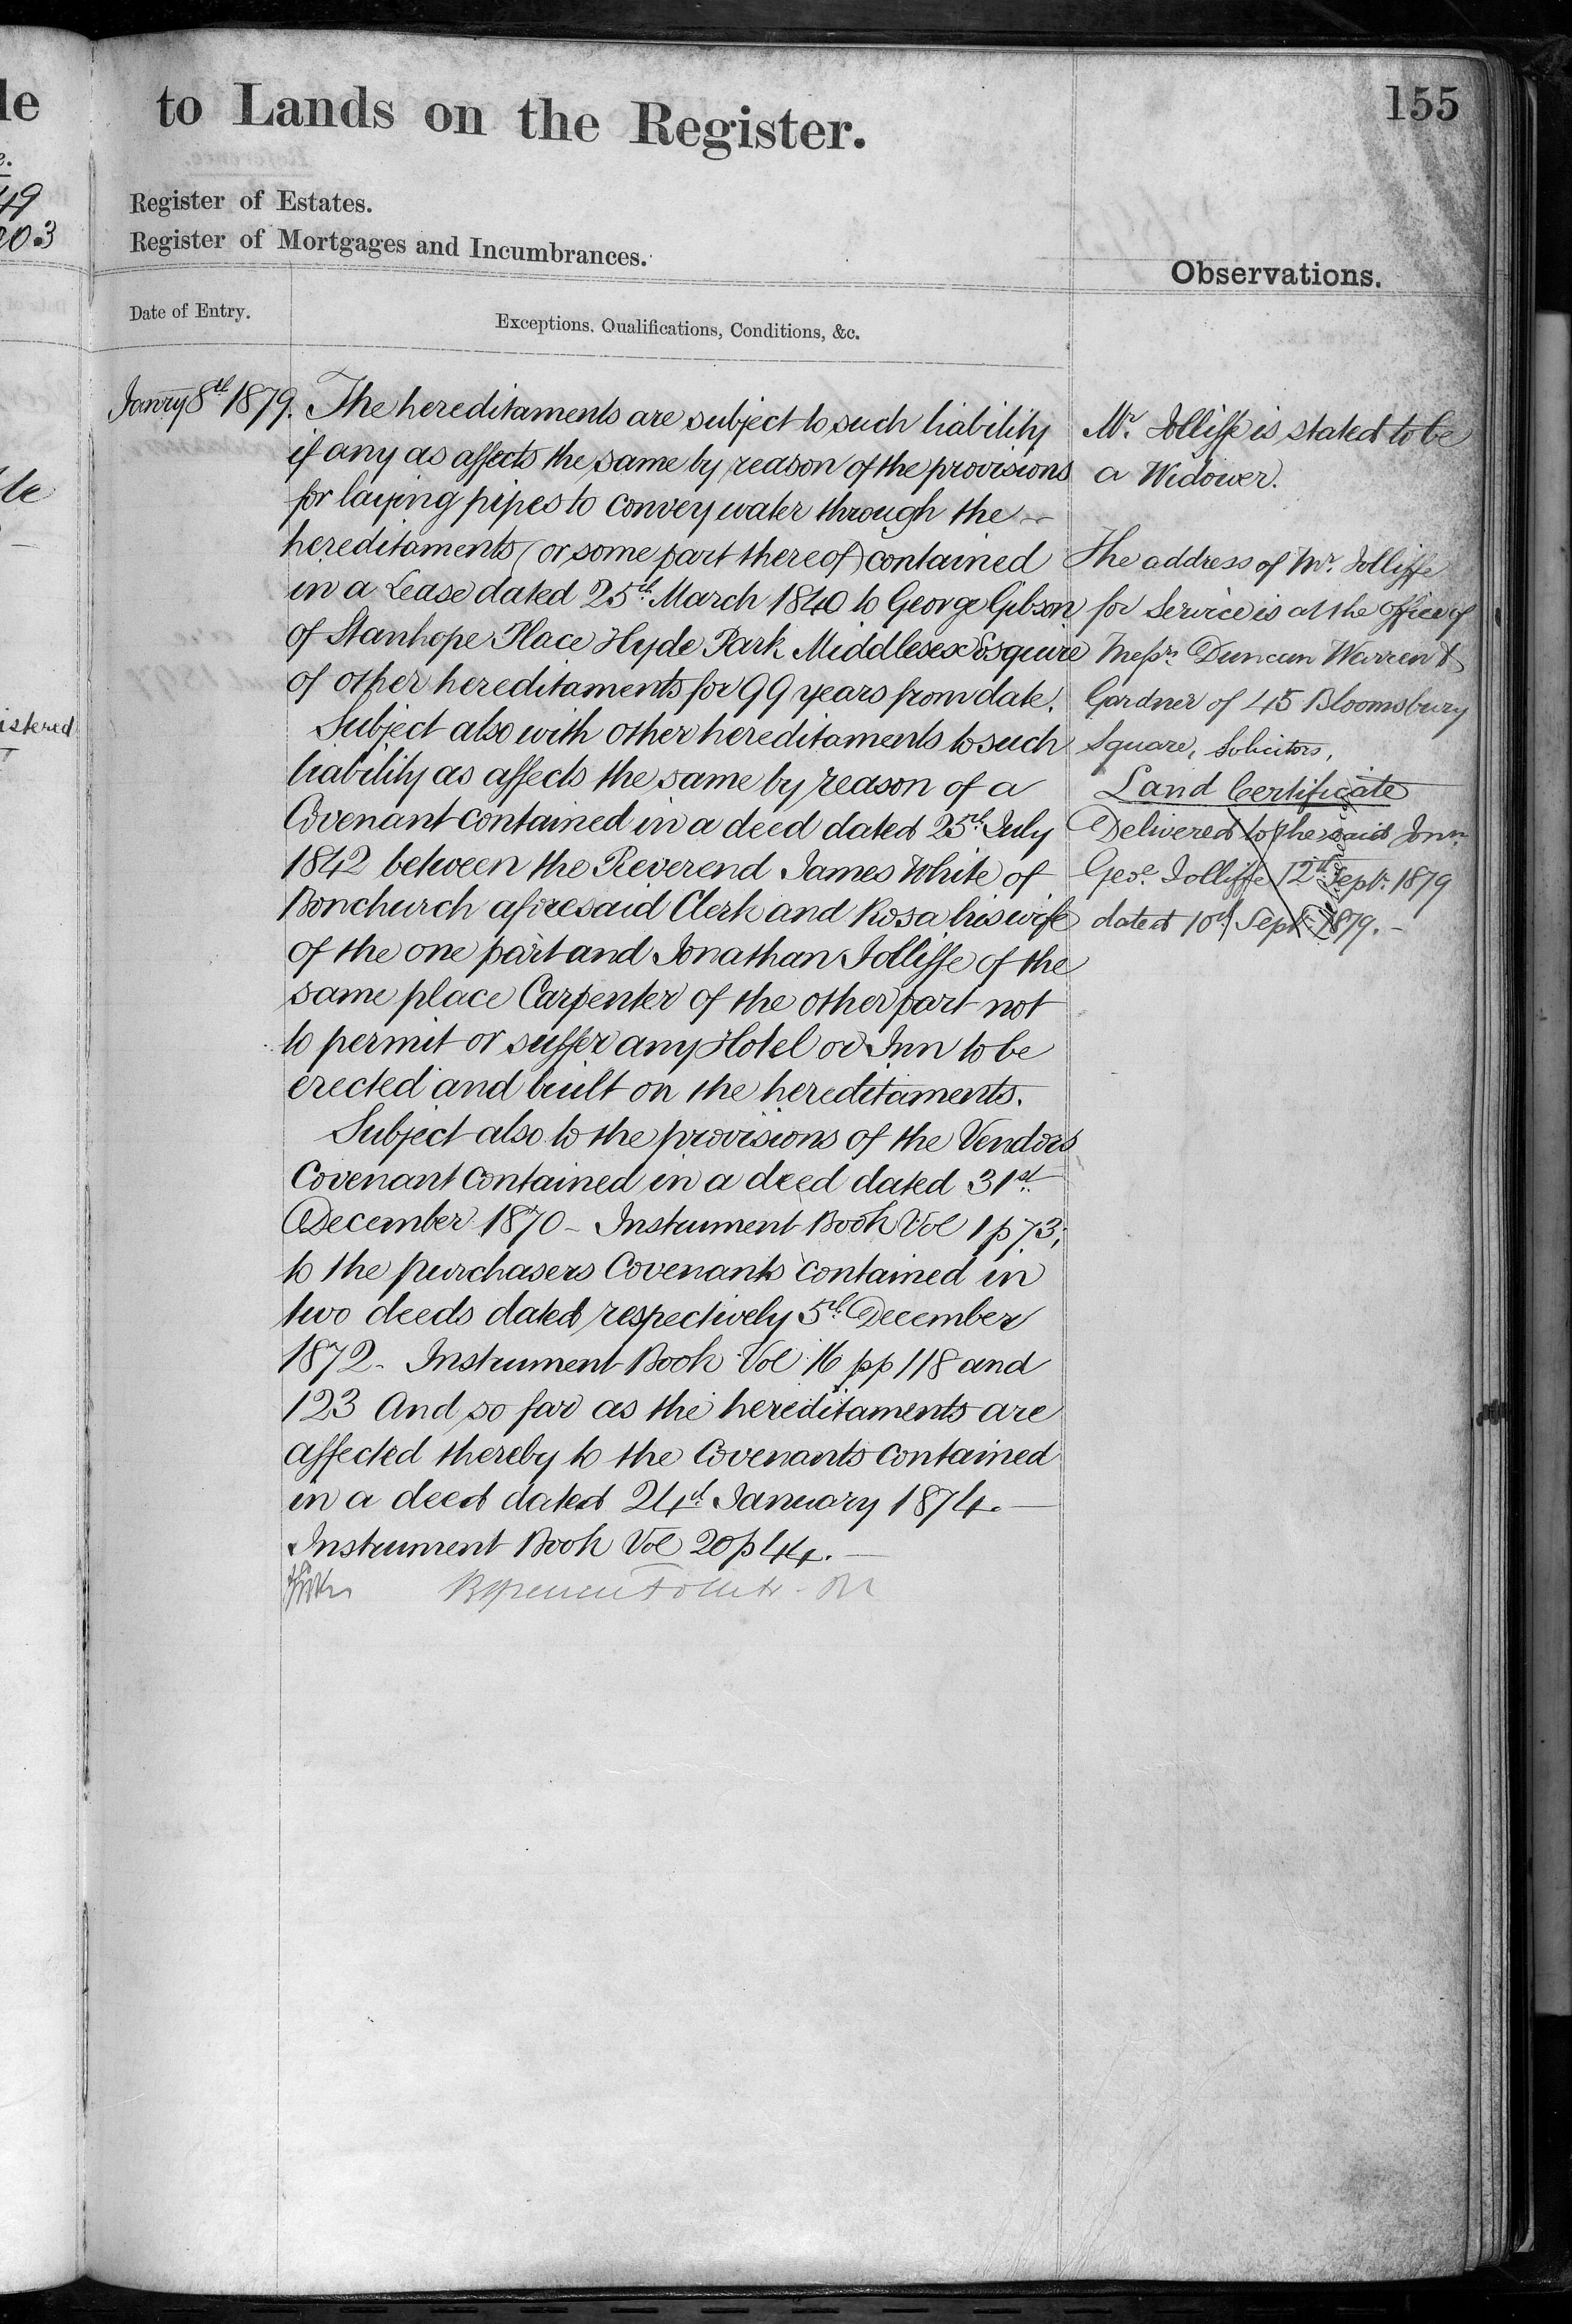 le
to Lands on the Register.
155
Register of Estates.
Register of Mortgages and Incumbrances.
Observations.
Date of Entry.
Exceptions, Qualifications, Conditions, &c.
Janry 8th 1879.
The hereditaments are subject to such liability
if any as affects the same by reason of the provisions
for laying pipes to convey water through the
hereditaments (or some part thereof) contained
in a Lease dated 25th March 1840 to George Gibson
of Stanhope Place Hyde Park Middlesex Esquire
of other hereditaments for 99 years from date.
Subject also with other hereditaments to such
liability as affects the same by reason of a
Covenant contained in a deed dated 25th July
1842 between the Reverend James White of
Bonchurch aforesaid Clerk and Rosa his wife
of the one part and Jonathan Jolliffe of the
same place Carpenter of the other part not
to permit or suffer any Hotel or Inn to be
erected and built on the hereditaments.
Subject also to the provisions of the Vendors
Covenant contained in a deed dated 31st
December 1870 – Instrument Book Vol 1 p 73;
to the purchasers Covenants contained in
two deeds dated respectively 5th December
1872 – Instrument Book Vol 16 pp 118 and
123 And so far as the hereditaments are
affected thereby to the Covenants contained
in a deed dated 24th January 1874. —
Instrument Book Vol 20 p 44. —
Mr. Jolliffe is stated to be
a Widower.
The address of Mr. Jolliffe
for Service is at the Office of
Messrs Duncan Warren &
Gardner of 45 Bloomsbury
Square, Solicitors,
Land Certificate
Delivered to the said Jonn.
Geo. Jolliffe 12th Sept. 1879
dated 10th Sept. 1879. –